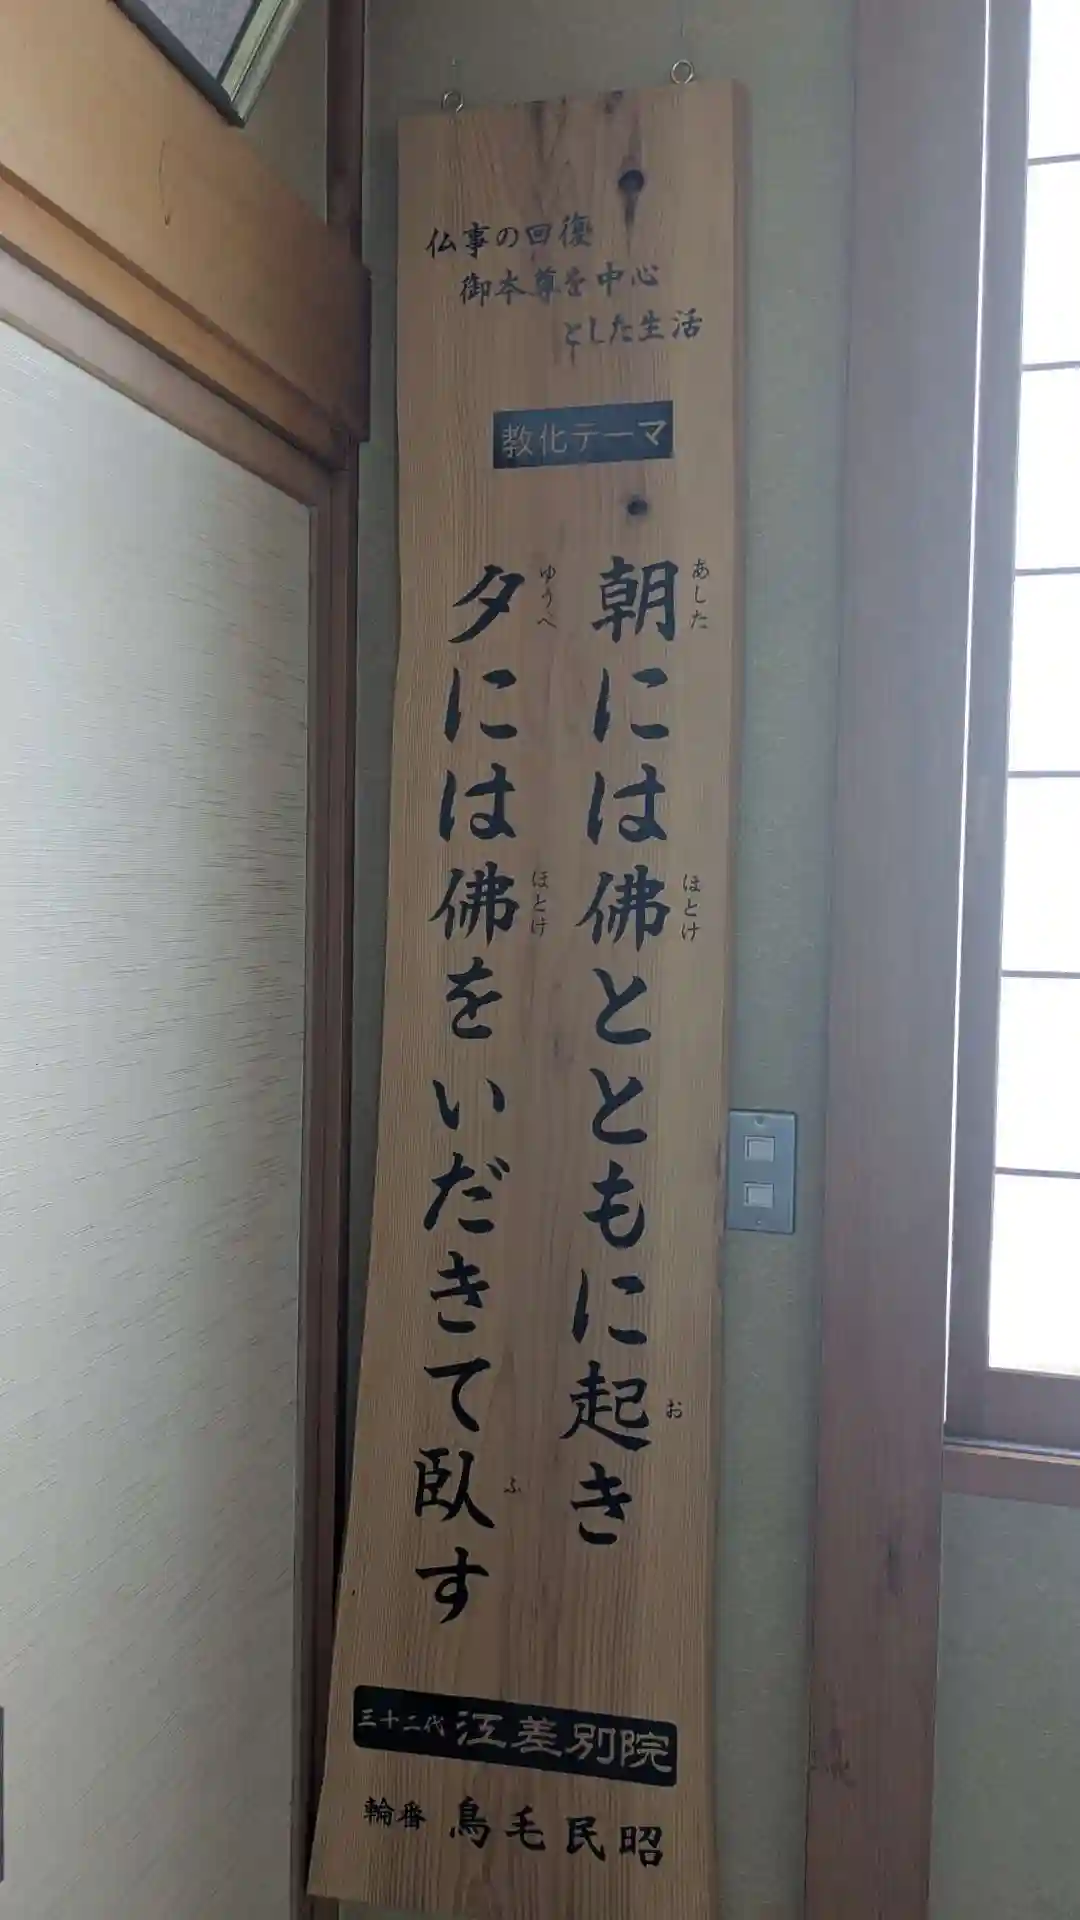 仏事の回復
御本尊を中心
とした生活
教化テーマ
朝には佛とともに起き
あした
ほとけ
お
夕には佛をいだきて臥す
ゆうべ
ほとけ
ふ
三十二代 江差別院
輪番 鳥毛民昭